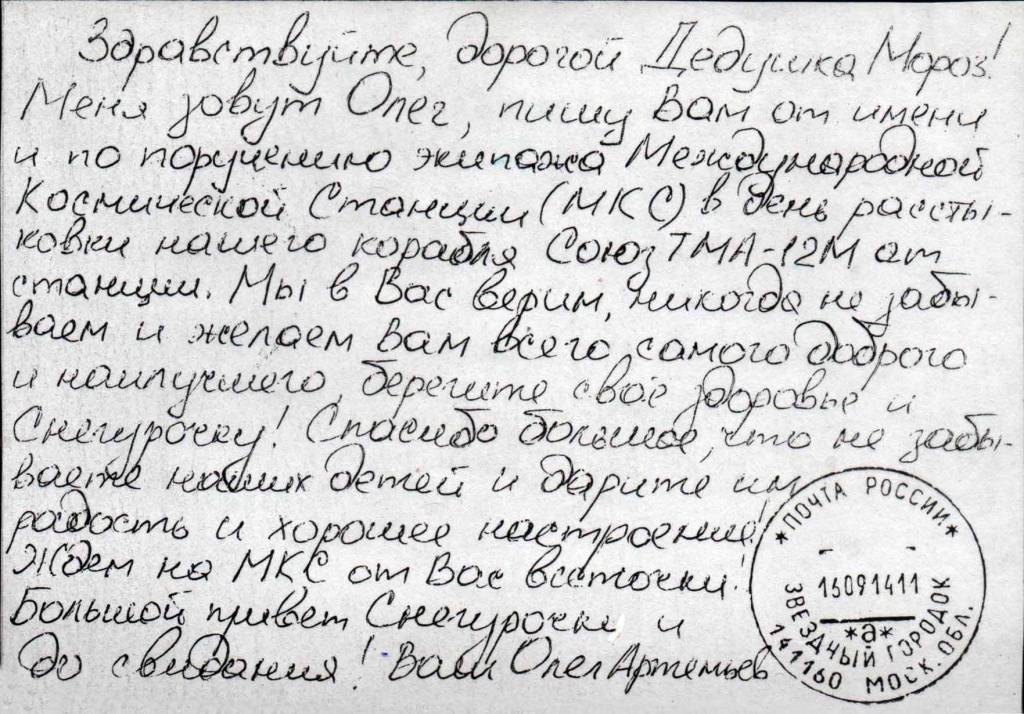 Здравствуйте, дорогой Дедушка Мороз!
Меня зовут Олег, пишу Вам от имени
и по поручению экипажа Международной
Космической Станции (МКС) в день рассты-
ковки нашего корабля Союз ТМА-12М от
станции. Мы в Вас верим, никогда не забы-
ваем и желаем Вам всего самого доброго
и наилучшего, берегите своё здоровье и
Снегурочку! Спасибо большое, что не забы-
ваете наших детей и дарите им
радость и хорошее настроение!
Ждем на МКС от Вас весточки!
Большой привет Снегурочке и
до свидания! Ваш Олег Артемьев
*ПОЧТА РОССИИ*
15091411
*а*
ЗВЕЗДНЫЙ ГОРОДОК
141160 МОСК. ОБЛ.